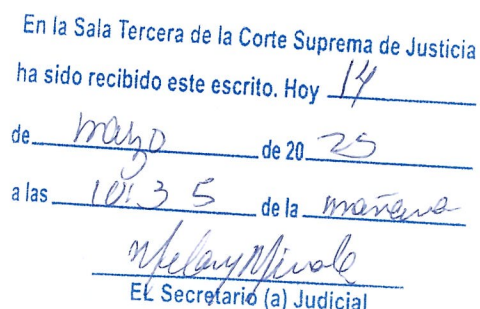 En la Sala Tercera de la Corte Suprema de Justicia
ha sido recibido este escrito. Hoy 14
de marzo de 20 25
a las 10:35 de la mañana
EL Secretario (a) Judicial